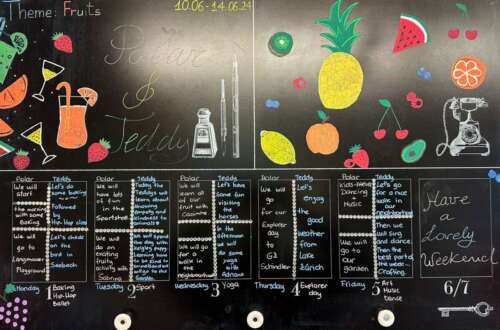 Theme: Fruits
10.06-14.06.24
Polar
&
Teddy
Polar
We will
start
The morning
with some
Baking
We will
go to
Langmauer
Playground
Teddy
Let's do
some baking
Followed
by
Hip-hop class
Let's check on
the bird
in
Seebach
Polar
We will
have lots
of fun
in the
Sportshall
We will
do an
exciting
fruity
activity
with
Sabrina
Teddy
Today the
Teddy's will
learn about
Polar
We will
learn all
of our
fruit
with
We will go
for a
walk in
the
neighbourhood
Teddy
Let's have
some fun
visiting
the
horses
In the
we will
do some
yoga
with
Polar
We
will go
for
our
Explorer
day
to
GZ
Schindler
Teddy
Let's
enjoy
the
good
weather
from
lake
Zürich
Polar
Dancing
+
Music
We will
go to
our
garden
Teddy
Let's go
for a
nice
walk in
the
Then we
will sing
and dance
then the
best part of
the week...
Crafting.
Have
a
Lovely
Weekend!
Monday 1 Baking
Hip-Hop
Ballet
Tuesday 2 Sport
Wednesday 3 Yoga
Thursday 4 Explorer
day
Friday 5 Art
Music
Dance
6/7